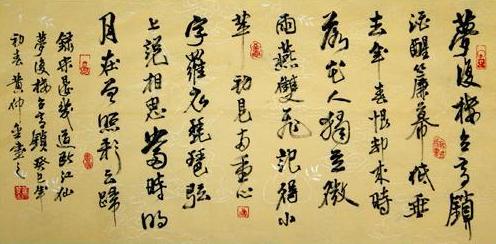 夢後樓台高鎖
酒醒簾幕低垂
去年春恨却來時
落花人獨立微
雨燕雙飛記得小
苹初見两重心
字羅衣琵琶弦
上說相思當時明
月在曾照彩云歸
錄宋晏幾道臨江仙
夢後樓台高鎖癸巳年
初春黄仲